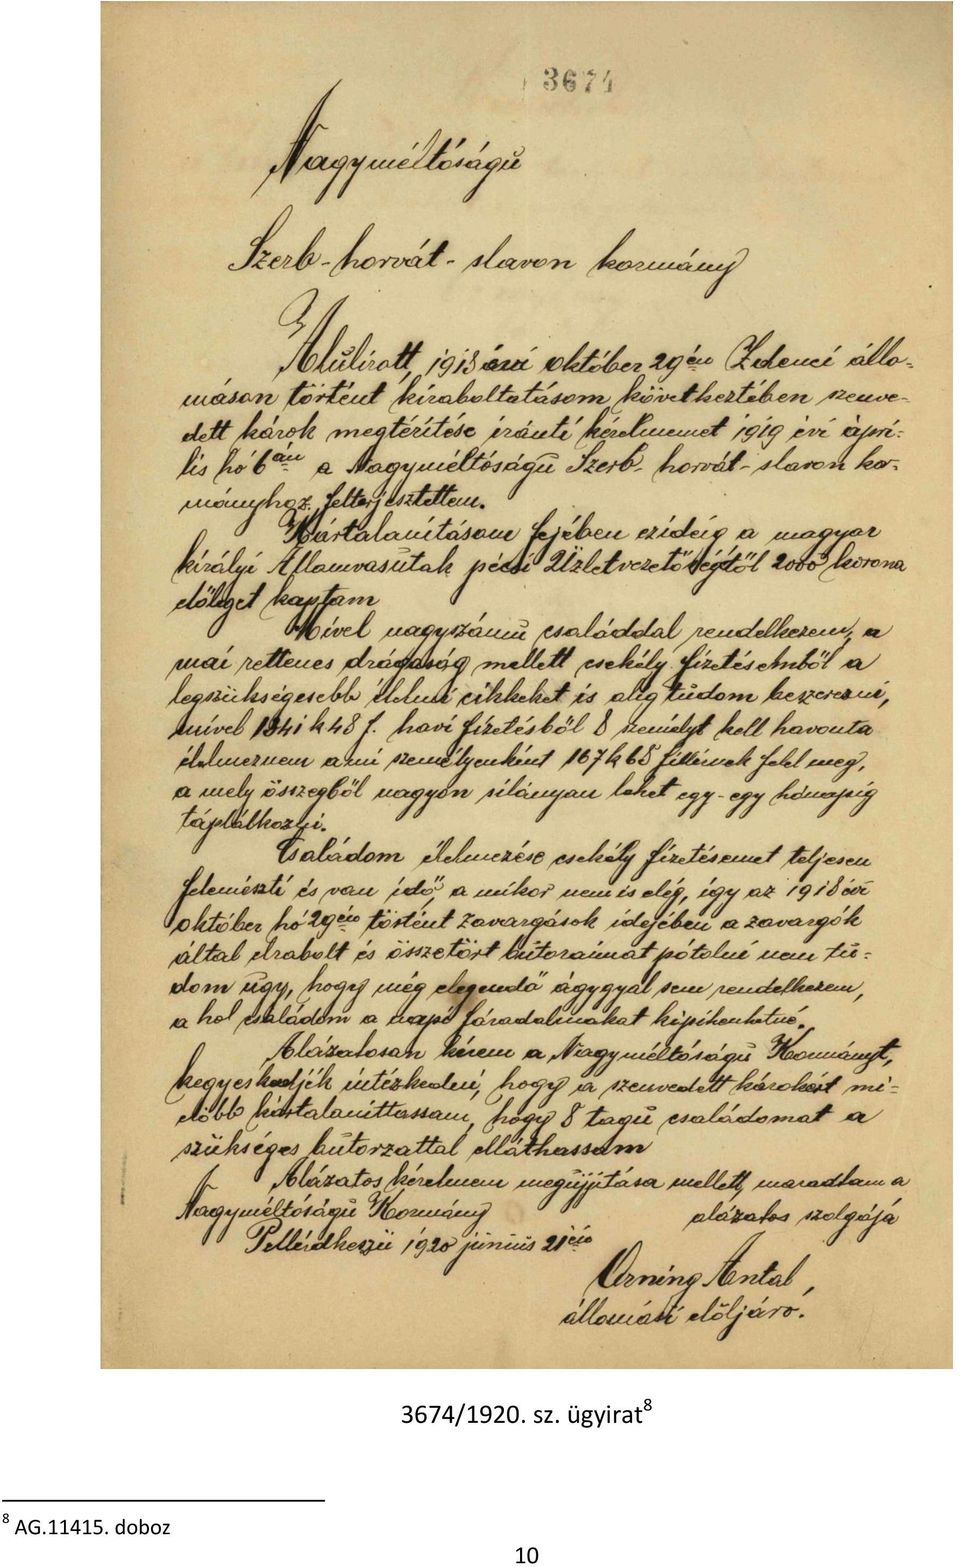 3674
Nagyméltóságú
Szerb-horvát-slavon kormány
Alulírott, 1918 évi október 29én állo-
máson történt kiraboltatásom következtében szenve-
dett károk megtérítése iránti kérelmemet 1919 évi ápri-
lis hó 6án a Nagyméltóságú Szerb-horvát-slavon kor-
mányhoz felterjesztettem.
Kártalanításom fejében ezideig a magyar
királyi Államvasutak pécsi Üzletvezetőségétől 2000 korona
előleget kaptam
Mivel nagyszámú családdal rendelkezem, a
mai rettenes drágaság mellett csekély fizetésemből a
legszükségesebb élelmi cikkeket is alig tudom beszerezni,
mivel 1341 k 48 f. havi fizetésből 8 személyt kell havonta
élelmeznem ami személyenként 167 k 68 fillérnek felel meg,
a mely összegből nagyon silányan lehet egy-egy hónapig
táplálkozni.
Családom élelmezése csekély fizetésemet teljesen
felemészti és van idő, a mikor nem is elég, így az 1918 évi
október hó 29én történt zavargások idejében a zavargók
által elrabolt és összetört bútoraimat pótolni nem tu-
dom úgy, hogy még elegendő ágygyal sem rendelkezem,
a hol családom a napi fáradalmakat kipihenhetné.
Alázatosan kérem a Nagyméltóságú Kormányt,
kegyeskedjék intézkedni, hogy a szenvedett károkért mi-
előbb kártalaníttassam, hogy 8 tagú családomat a
szükséges bútorzattal elláthassam
Alázatos kérelmem megújjítása mellett, maradtam a
Nagyméltóságú Kormány alázatos szolgája
Pellérdkeszü 1920 június 21én
Orning Antal,
állomási előljáró.
3674/1920. sz. ügyirat8
8 AG.11415. doboz
10